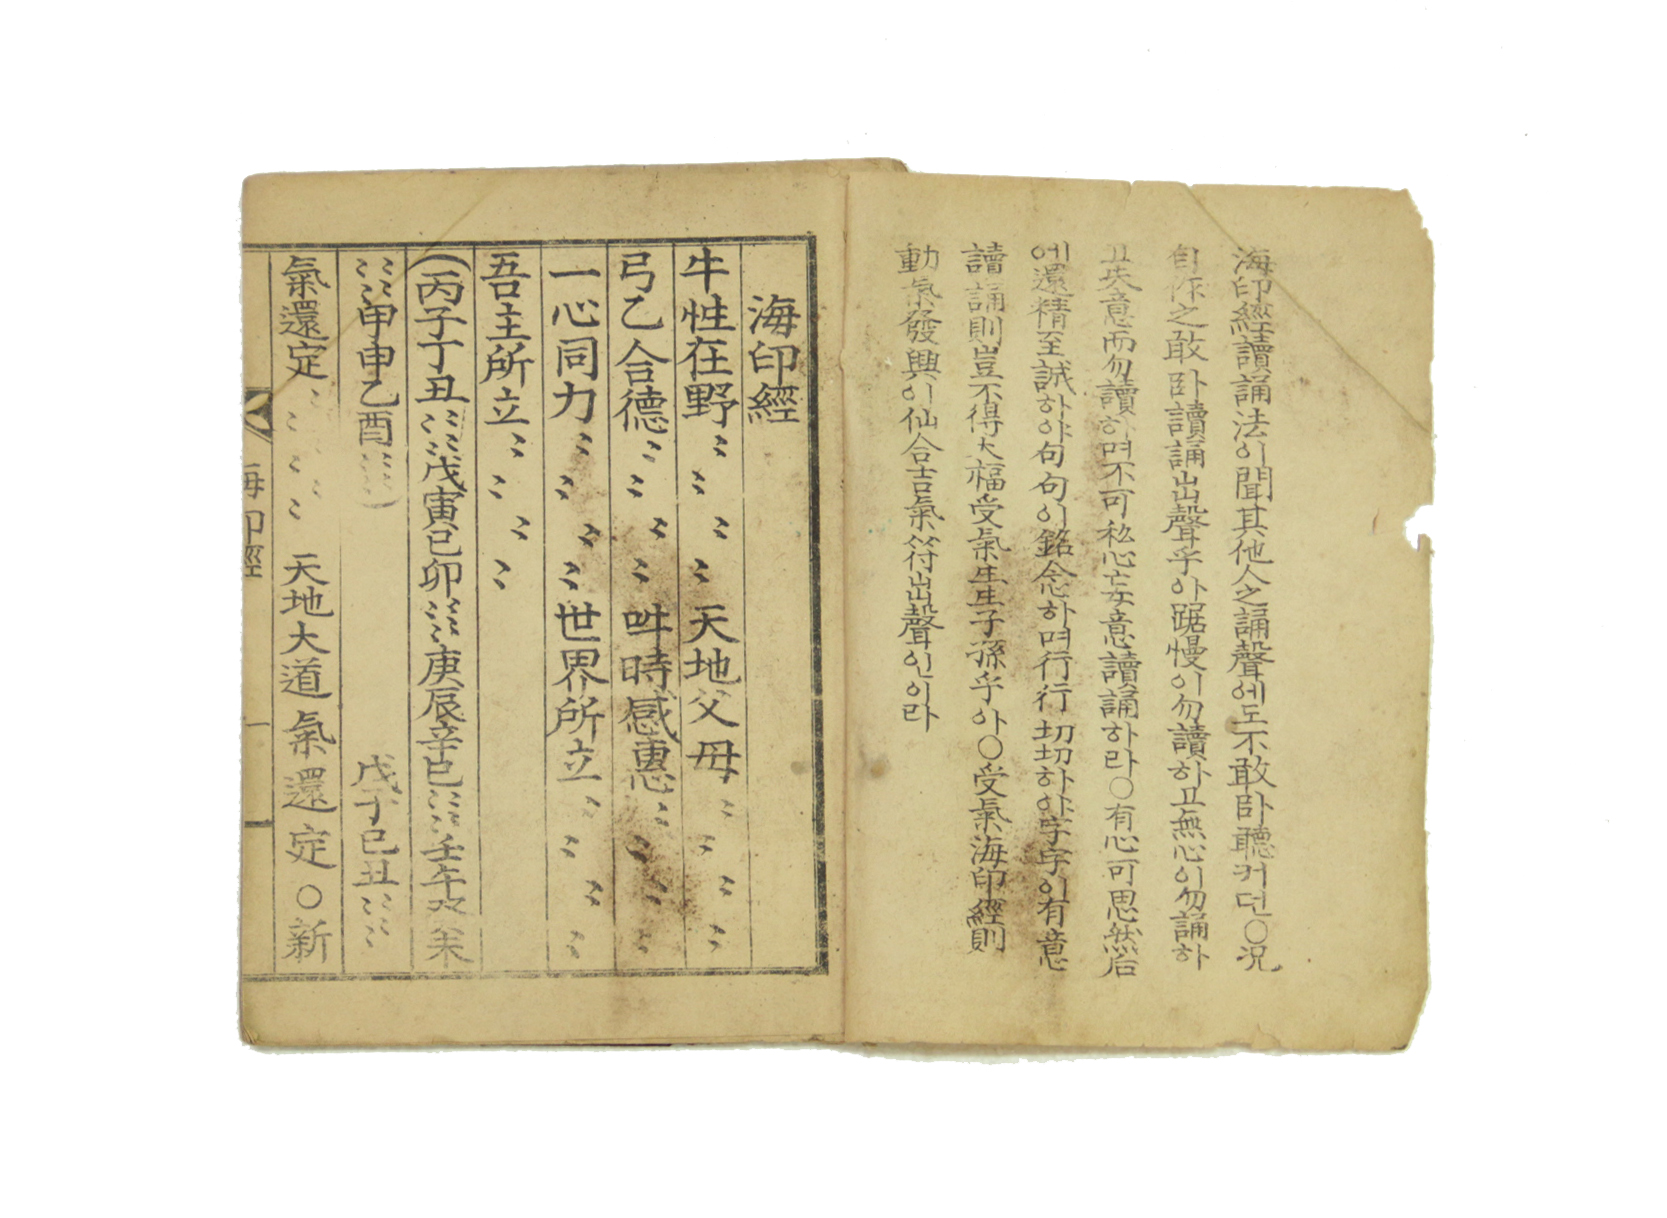 海印經讀誦法이聞其他人之誦聲에도不敢卧聽커던○况
自作之敢卧讀誦出聲乎아踞慢이勿讀하고無心이勿誦하
고失意而勿讀하며不可私心妄意讀誦하라○有心可思然后
에還精至誠하야句句이銘念하며行行切切하야字字이有意
讀誦則豈不得大福受氣生生子孫乎아○受氣海印經則
動氣發興이仙合吉氣符出聲인이라
海印經
牛性在野〻〻〻〻天地父母〻〻〻〻
弓乙合德〻〻〻〻呌時感惠〻〻〻〻
一心同力〻〻〻〻世界所立〻〻〻〻
吾主所立〻〻〻〻
(丙子丁丑〻〻〻〻戊寅己卯〻〻〻〻庚辰辛巳〻〻〻〻壬午癸未
〻〻〻〻甲申乙酉〻〻〻〻)戊子己丑〻〻〻〻
氣還定〻〻〻〻〻天地大道氣還定○新
海印經 一